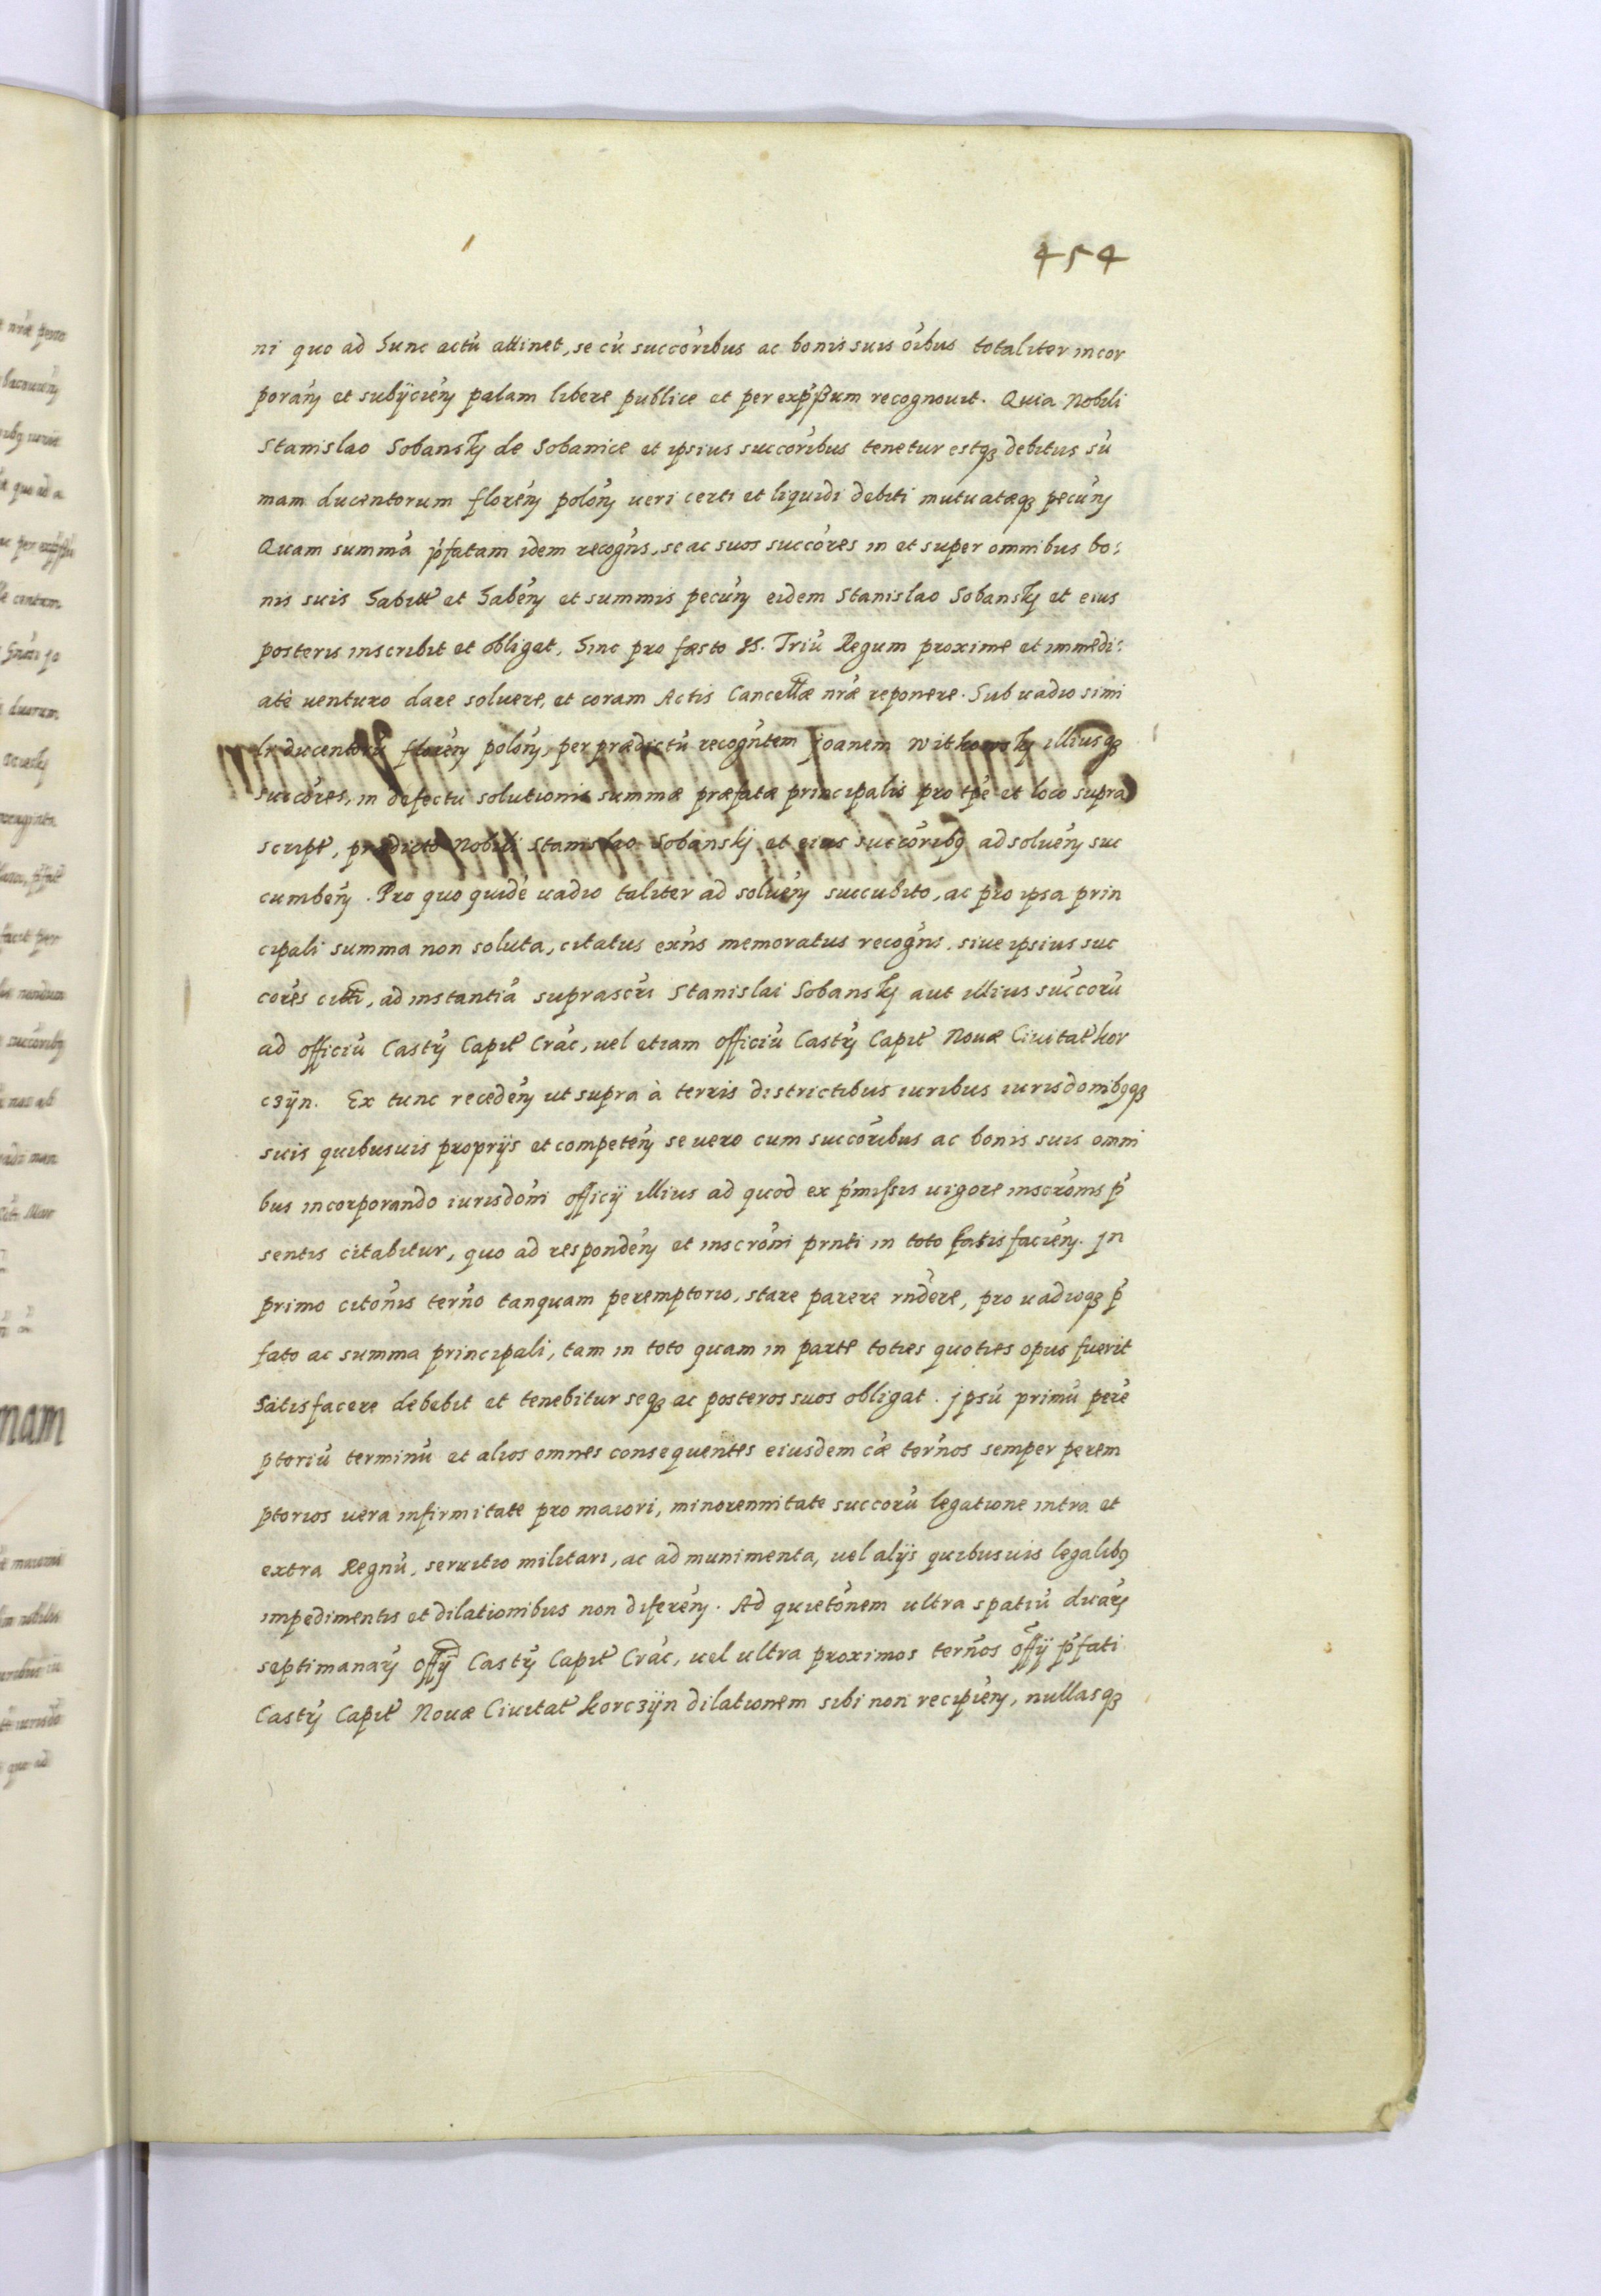 454
ni quo ad hunc actũ attinet, se cũ succõribus ac bonis suis õibus totaliter incor
porañ et subijcieñ palam libere publice et per exp̃ßum recognouit. Quia Nobili
Stanislao Sobansky de Sobanice et ipsius succõribus tenetur estqꝫ debitus sũ
mam ducentorum floreñ poloñ ueri certi et liquidi debiti mutuatæqꝫ pecuñ
Quam summã p̃fatam idem recogñs, se ac suos succõres in et super omnibus bo:
nis suis habitƷ et habeñ et summis pecuñ eidem Stanislao Sobansky et eius
posteris inscribit et obligat, hinc pro fæsto SS. Triũ Regum proxime et immedi:
atè uenturo dare soluere, et coram Actis Cancellæ nr̃æ reponere. Sub uadio simi
li ducentorũ floreñ poloñ, per prædictũ recogñtem Joanem Witkowsky illiusqꝫ
succõres, in defectu solutionis summæ præfatæ principalis pro tp̃e et loco supra
script, prædicto Nobili Stanislao Sobanskj et eius succõribꝫ ad solueñ suc
cumbeñ. Pro quo quidẽ uadio taliter ad solueñ succubito, ac pro ipsa prin
cipali summa non soluta, citatus exñs memoratus recogñs, siue ipsius suc
cõres citti, ad instantiã suprascr̃i Stanislai Sobansky aut illius succorũ
ad officiũ Castr̃ Capit Crãc, uel etiam officiũ Castr̃ Capit Nouæ Ciuitat kor
cʒÿn. Ex tunc recedeñ ut supra à terris districtibus iuribus iurisdõnibꝫqꝫ
suis quibusuis proprijs et competeñ se uero cum succõribus ac bonis suis omni
bus incorporando iurisdõni officij illius ad quod ex p̃mißis uigore inscrõnis p̃
sentis citabitur, quo ad respondeñ et inscrõni prñti in toto satisfacieñ. Jn
primo citõnis terño tanquam peremptorio, stare parere rñdere, pro uadioqꝫ p̃
fato ac summa principali, tam in toto quam in parte toties quoties opus fuerit
Satisfacere debebit et tenebitur seqꝫ ac posteros suos obligat. jpsũ primũ perẽ
ptoriũ terminũ et alios omnes consequentes eiusdem cãe terños semper perem
ptorios uera infirmitate pro maiori, minorennitate succorũ legatione intra et
extra Regnũ, seruitio militari, ac ad munimenta, uel alijs quibusuis legalibꝫ
impedimentis et dilationibus non difereñ. Ad quietõnem ultra spatiũ duar̃
septimanar̃ offÿ Castr̃ Capit Crãc, uel ultra proximos terños offÿ p̃fati
Castr̃ Capit Nouæ Ciuitat korcʒÿn dilationem sibi non recipieñ, nullasqꝫ